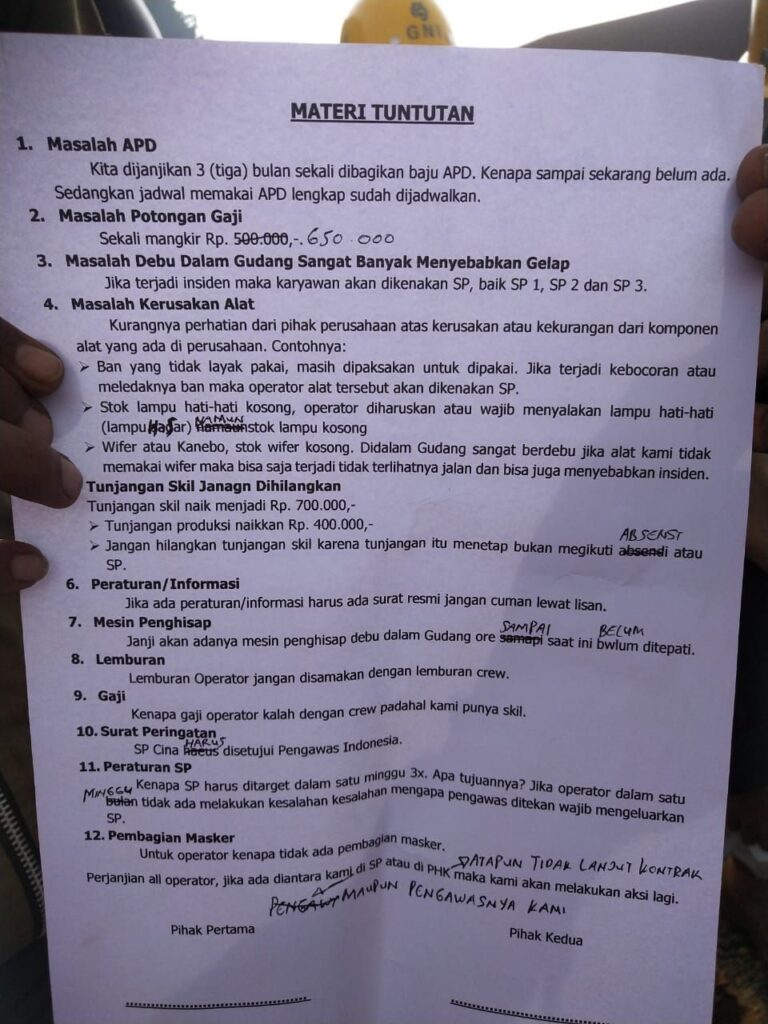 GNI
MATERI TUNTUTAN
1. Masalah APD
Kita dijanjikan 3 (tiga) bulan sekali dibagikan baju APD. Kenapa sampai sekarang belum ada.
Sedangkan jadwal memakai APD lengkap sudah dijadwalkan.
2. Masalah Potongan Gaji
Sekali mangkir Rp. 500.000,-. 650.000
3. Masalah Debu Dalam Gudang Sangat Banyak Menyebabkan Gelap
Jika terjadi insiden maka karyawan akan dikenakan SP, baik SP 1, SP 2 dan SP 3.
4. Masalah Kerusakan Alat
Kurangnya perhatian dari pihak perusahaan atas kerusakan atau kekurangan dari komponen
alat yang ada di perusahaan. Contohnya:
➢ Ban yang tidak layak pakai, masih dipaksakan untuk dipakai. Jika terjadi kebocoran atau
meledaknya ban maka operator alat tersebut akan dikenakan SP.
➢ Stok lampu hati-hati kosong, operator diharuskan atau wajib menyalakan lampu hati-hati
NAMUN
(lampu Hasar) namaun stok lampu kosong
➢ Wifer atau Kanebo, stok wifer kosong. Didalam Gudang sangat berdebu jika alat kami tidak
memakai wifer maka bisa saja terjadi tidak terlihatnya jalan dan bisa juga menyebabkan insiden.
Tunjangan Skil Janagn Dihilangkan
Tunjangan skil naik menjadi Rp. 700.000,-
➢ Tunjangan produksi naikkan Rp. 400.000,-
ABSENSI
➢ Jangan hilangkan tunjangan skil karena tunjangan itu menetap bukan megikuti absendi atau
SP.
6. Peraturan/Informasi
Jika ada peraturan/informasi harus ada surat resmi jangan cuman lewat lisan.
7. Mesin Penghisap
SAMPAI BELUM
Janji akan adanya mesin penghisap debu dalam Gudang ore samapi saat ini bwlum ditepati.
8. Lemburan
Lemburan Operator jangan disamakan dengan lemburan crew.
9. Gaji
Kenapa gaji operator kalah dengan crew padahal kami punya skil.
10. Surat Peringatan
HARUS
SP Cina haeus disetujui Pengawas Indonesia.
11. Peraturan SP
Kenapa SP harus ditarget dalam satu minggu 3x. Apa tujuannya? Jika operator dalam satu
MINGGU
bulan tidak ada melakukan kesalahan kesalahan mengapa pengawas ditekan wajib mengeluarkan
SP.
12. Pembagian Masker
Untuk operator kenapa tidak ada pembagian masker.
ATAPUN TIDAK LANJUT KONTRAK
Perjanjian all operator, jika ada diantara kami di SP atau di PHK maka kami akan melakukan aksi lagi.
MAUPUN PENGAWASNYA KAMI
Pihak Pertama
Pihak Kedua